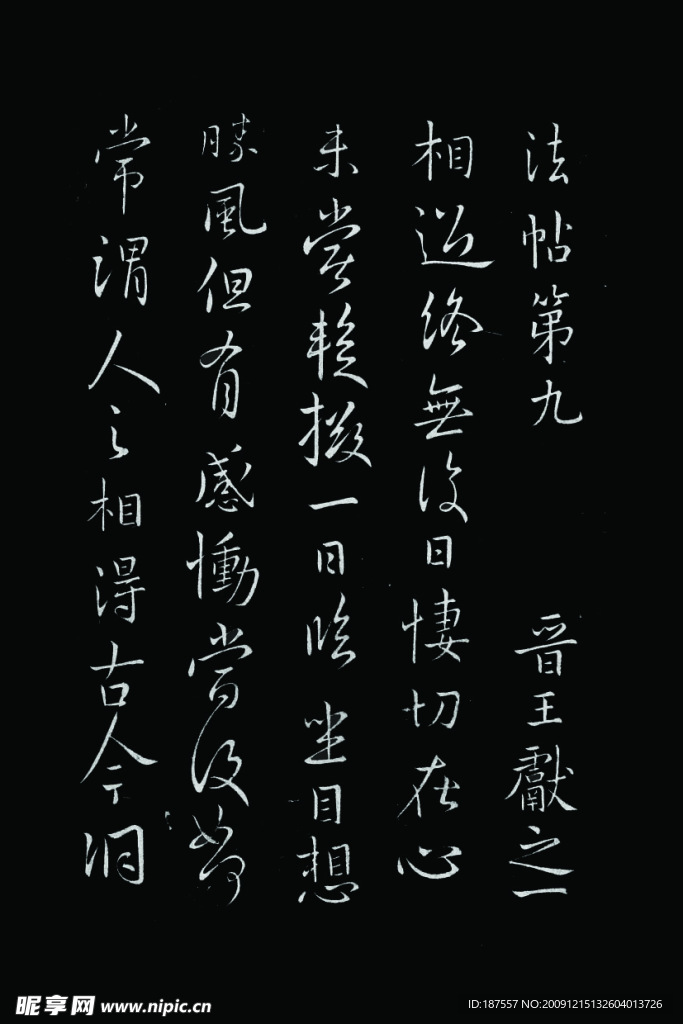 法帖第九 晉王獻之一
相過終無復日悽切在心
未嘗暫掇一日臨坐目想
勝風但有感慟當復如何
常謂人之相得古今洞
昵享网 www.nipic.cn
ID:187557 NO:20091215132604013726